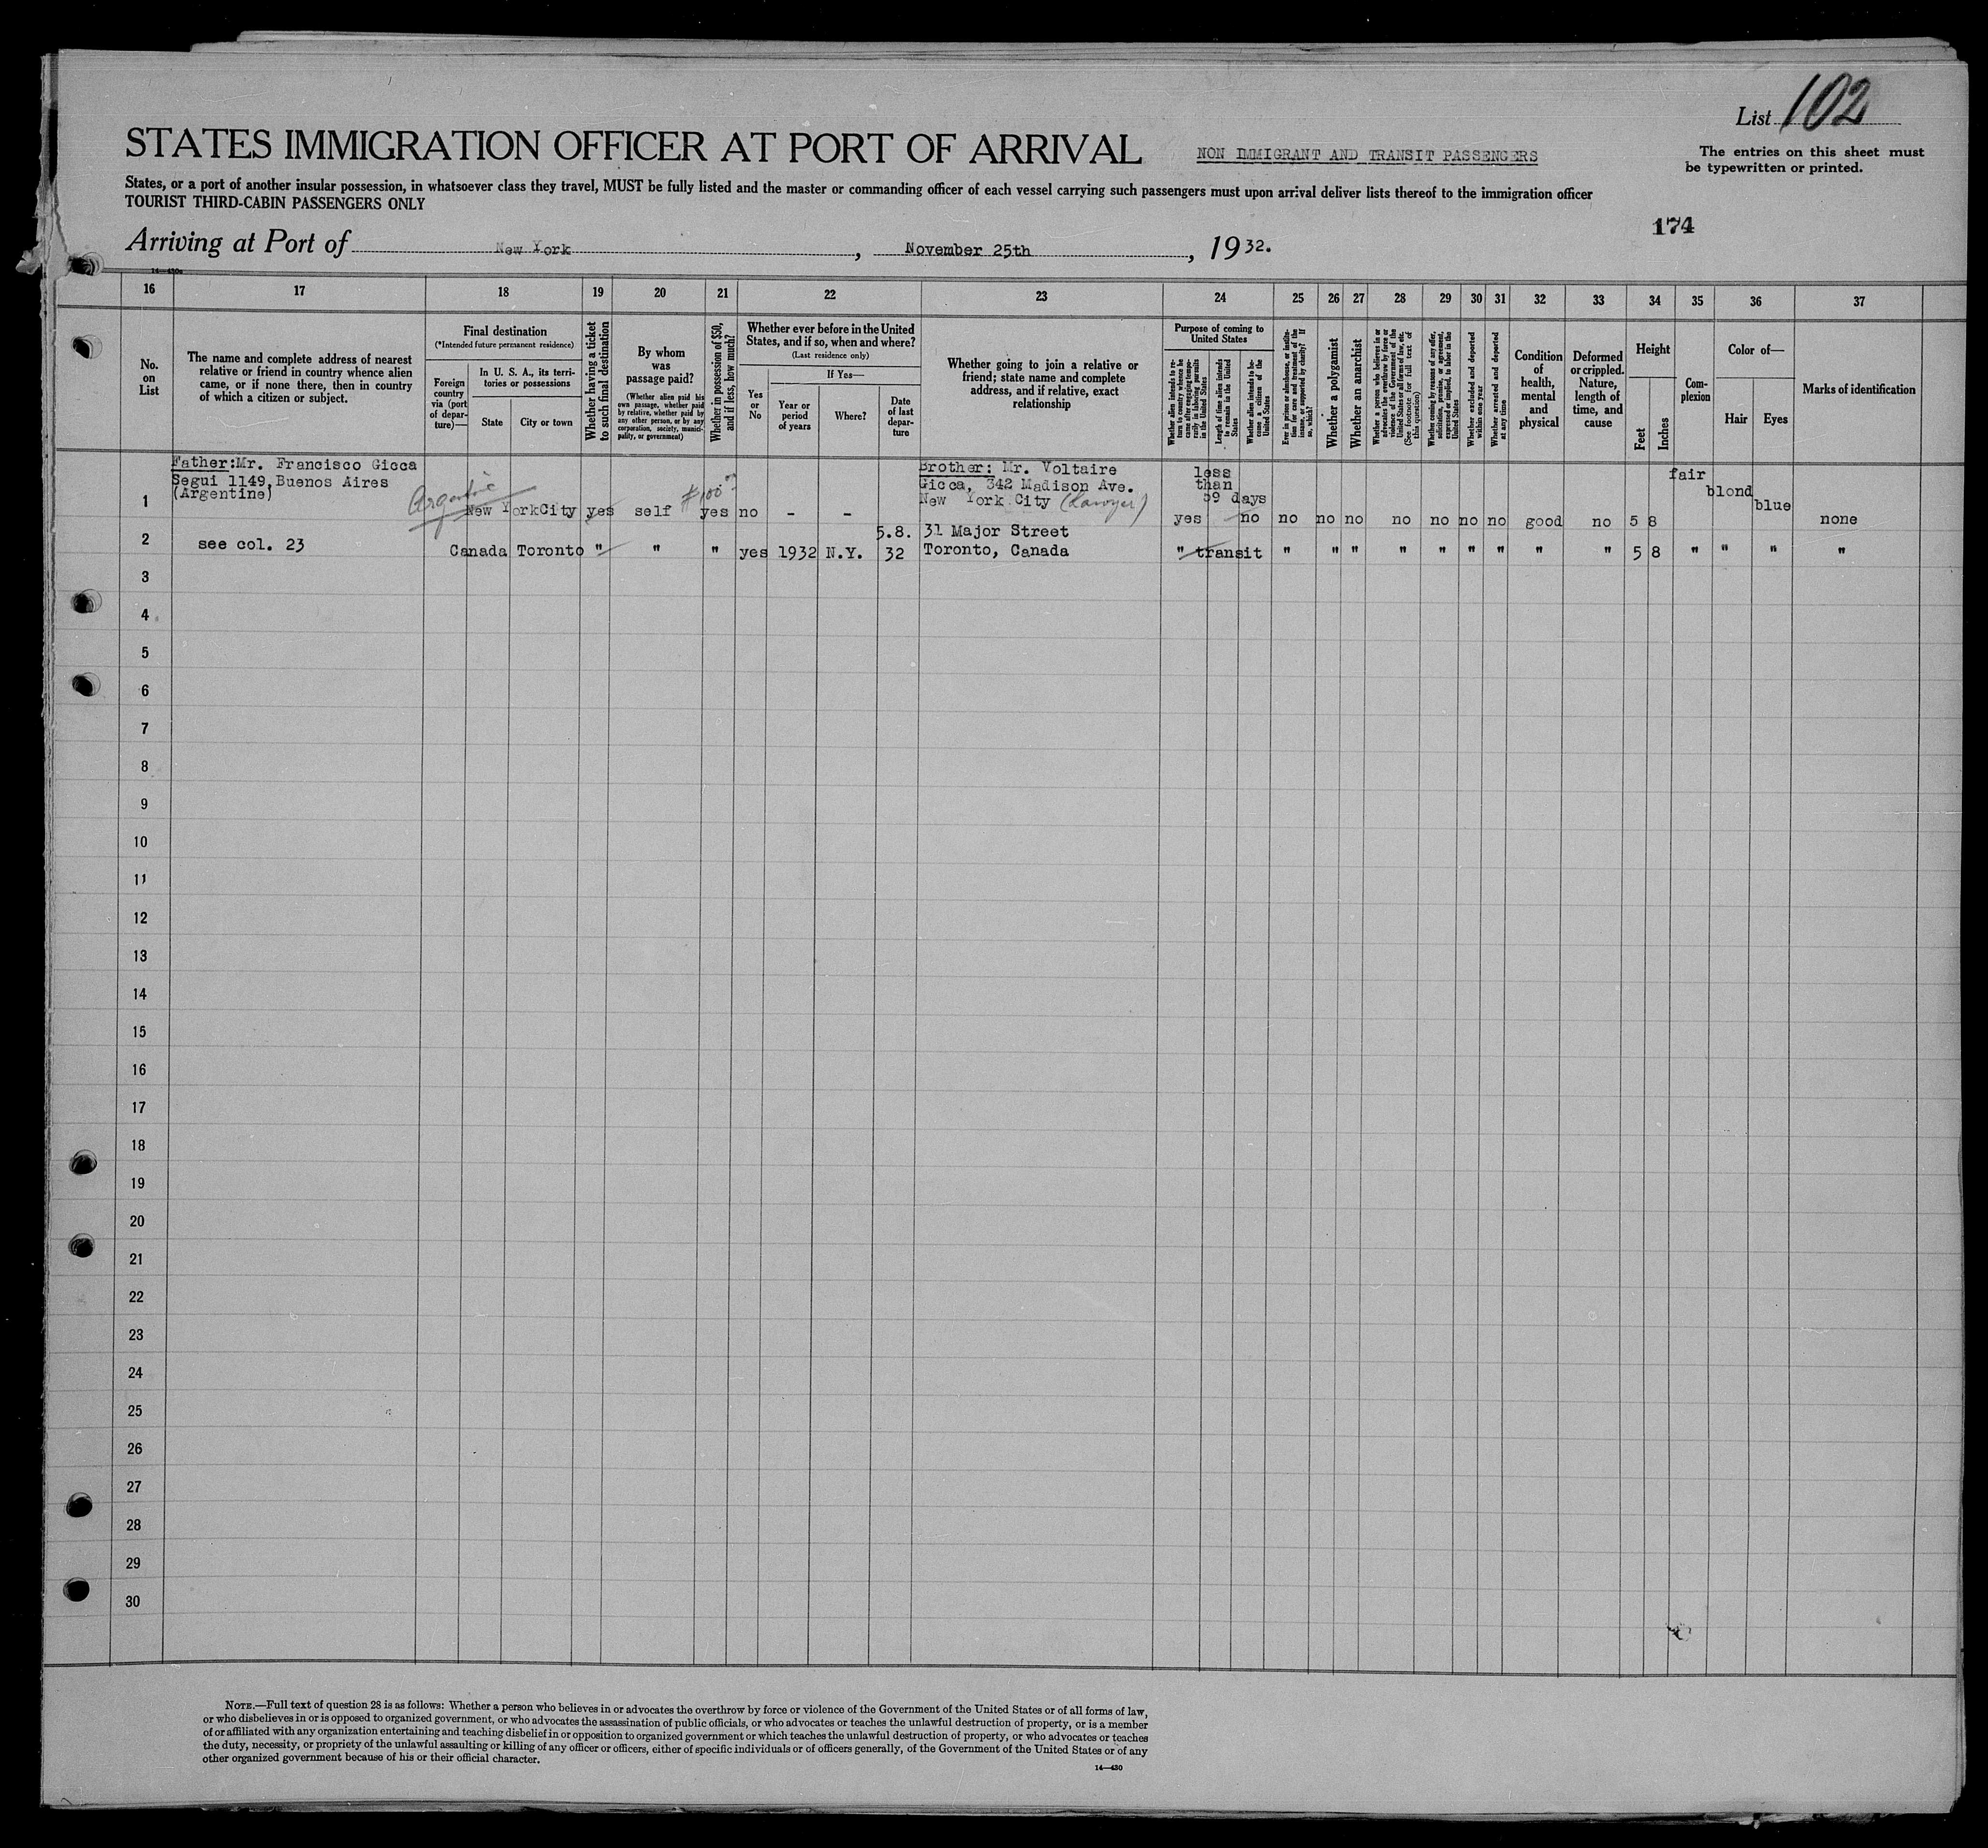 List 102
STATES IMMIGRATION OFFICER AT PORT OF ARRIVAL
NON IMMIGRANT AND TRANSIT PASSENGERS
The entries on this sheet must
be typewritten or printed.
States, or a port of another insular possession, in whatsoever class they travel, MUST be fully listed and the master or commanding officer of each vessel carrying such passengers must upon arrival deliver lists thereof to the immigration officer
TOURIST THIRD-CABIN PASSENGERS ONLY
174
Arriving at Port of New York, November 25th, 1932.
14—430a
16 17 18 19 20 21 22 23 24 25 26 27 28 29 30 31 32 33 34 35 36 37
No.
on
List
The name and complete address of nearest
relative or friend in country whence alien
came, or if none there, then in country
of which a citizen or subject.
Final destination
(*Intended future permanent residence)
Foreign
country
via (port
of depar-
ture)—
In U. S. A., its terri-
tories or possessions
State
City or town
Whether having a ticket
to such final destination
By whom
was
passage paid?
(Whether alien paid his
own passage, whether paid
by relative, whether paid by
any other person, or by any
corporation, society, munici-
pality, or government)
Whether in possession of $50,
and if less, how much?
Whether ever before in the United
States, and if so, when and where?
(Last residence only)
Yes
or
No
If Yes—
Year or
period
of years
Where?
Date
of last
depar-
ture
Whether going to join a relative or
friend; state name and complete
address, and if relative, exact
relationship
Purpose of coming to
United States
Whether alien intends to re-
turn to country whence he
came after engaging tempo-
rarily in laboring pursuits
in the United States
Length of time alien intends
to remain in the United
States
Whether alien intends to be-
come a citizen of the
United States
Ever in prison or almshouse, or institu-
tion for care and treatment of the
insane, or supported by charity? If
so, which?
Whether a polygamist
Whether an anarchist
Whether a person who believes in or
advocates the overthrow by force or
violence of the Government of the
United States or all forms of law, etc.
(See footnote for full text of
this question)
Whether coming by reasons of any offer,
solicitation, promise, or agreement,
expressed or implied, to labor in the
United States
Whether excluded and deported
within one year
Whether arrested and deported
at any time
Condition
of
health,
mental
and
physical
Deformed
or crippled.
Nature,
length of
time, and
cause
Height
Feet
Inches
Com-
plexion
Color of—
Hair
Eyes
Marks of identification
1
Father:Mr. Francisco Gicca
Segui 1149, Buenos Aires
(Argentine)
Argentine
New YorkCity yes self $100 yes no - -
Brother: Mr. Voltaire
Gicca, 342 Madison Ave.
New York City (Lawyer)
less
than
59 days
yes no no no no no no no no good no 5 8
fair
blond
blue
none
2
see col. 23 Canada Toronto " " " yes 1932 N.Y.
5.8.
32
31 Major Street
Toronto, Canada
" transit " " " " " " " " " 5 8 " " " "
3
4
5
6
7
8
9
10
11
12
13
14
15
16
17
18
19
20
21
22
23
24
25
26
27
28
29
30
NOTE.—Full text of question 28 is as follows: Whether a person who believes in or advocates the overthrow by force or violence of the Government of the United States or of all forms of law,
or who disbelieves in or is opposed to organized government, or who advocates the assassination of public officials, or who advocates or teaches the unlawful destruction of property, or is a member
of or affiliated with any organization entertaining and teaching disbelief in or opposition to organized government or which teaches the unlawful destruction of property, or who advocates or teaches
the duty, necessity, or propriety of the unlawful assaulting or killing of any officer or officers, either of specific individuals or of officers generally, of the Government of the United States or of any
other organized government because of his or their official character.
14—430